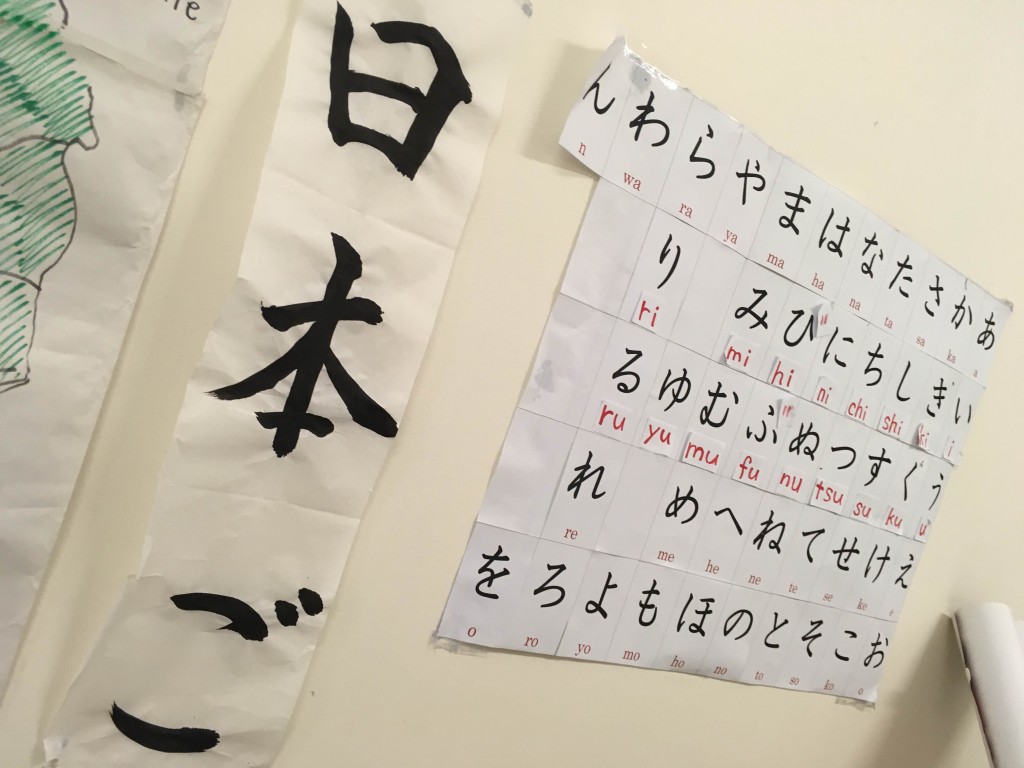 日本ご
んわらやまはなたさかあ
n wa ra ya ma ha na ta sa ka a
りみひにちしきい
ri mi hi ni chi shi ki i
るゆむふぬつすくう
ru yu mu fu nu tsu su ku u
れめへねてせけえ
re me he ne te se ke e
をろよもほのとそこお
o ro yo mo ho no to so ko o